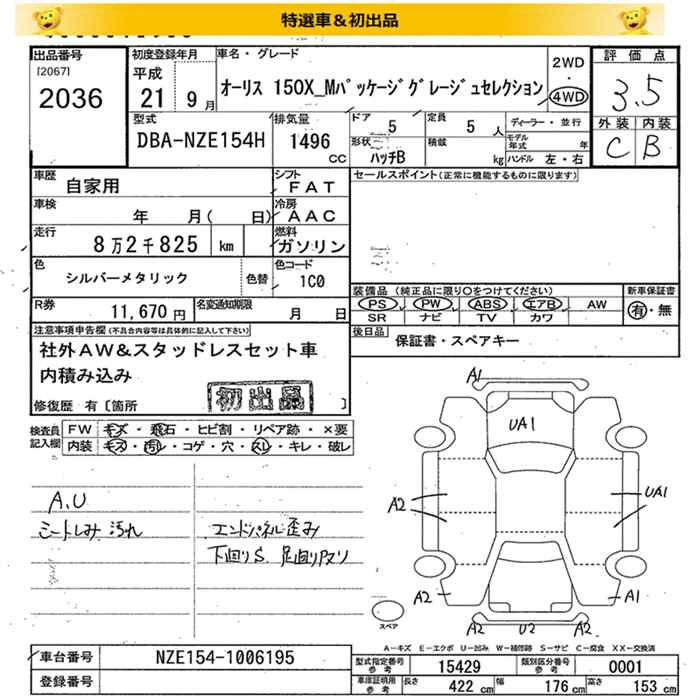 特選車＆初出品
出品番号
[2067]
2036
初度登録年月
平成
21 9月
車名・グレード
オーリス 150X_Mパッケージグレージュセレクション
2WD
・
4WD
評価点
3.5
外装 内装
C B
型式
DBA-NZE154H
排気量
1496
cc
ドア
5
定員
5 人
形状
ハッチB
積載
kg
ディーラー・並行
モデル年式 年
ハンドル 左・右
車歴
自家用
シフト
FAT
車検
年 月( 日)
冷房
AAC
走行
8万2千825 km
燃料
ガソリン
色
シルバーメタリック
色替
色コード
1C0
R券
11,670円
名変通知期限
月 日
セールスポイント(正常に機能するものに限ります)
装備品 (純正品に限り〇をつけてください)
PS PW ABS エアB AW
SR ナビ TV カワ
新車保証書
有・無
後日品
保証書・スペアキー
注意事項申告欄(不具合内容等は具体的に記入して下さい)
社外AW&スタッドレスセット車
内積み込み
初出品
修復歴 有〔箇所 〕
検査員
記入欄
FW キズ・飛石・ヒビ割・リペア跡・×要
内装 キズ・汚レ・コゲ・穴・スレ・キレ・破レ
A,U
シートしみ 汚れ
エンドパネル歪み
下回りS. 足回りアマリ
A1
UA1
A2
UA1
A2
A2
A1
A2 U2 A2
スペア
A－キズ E－エクボ U－凹み W－補修跡 S－サビ C－腐食 XX－交換済
車台番号
NZE154-1006195
登録番号
型式指定番号
参考
15429
類別区分番号
参考
0001
車庫証明用
参考
長さ
422 cm
幅
176 cm
高さ
153 cm